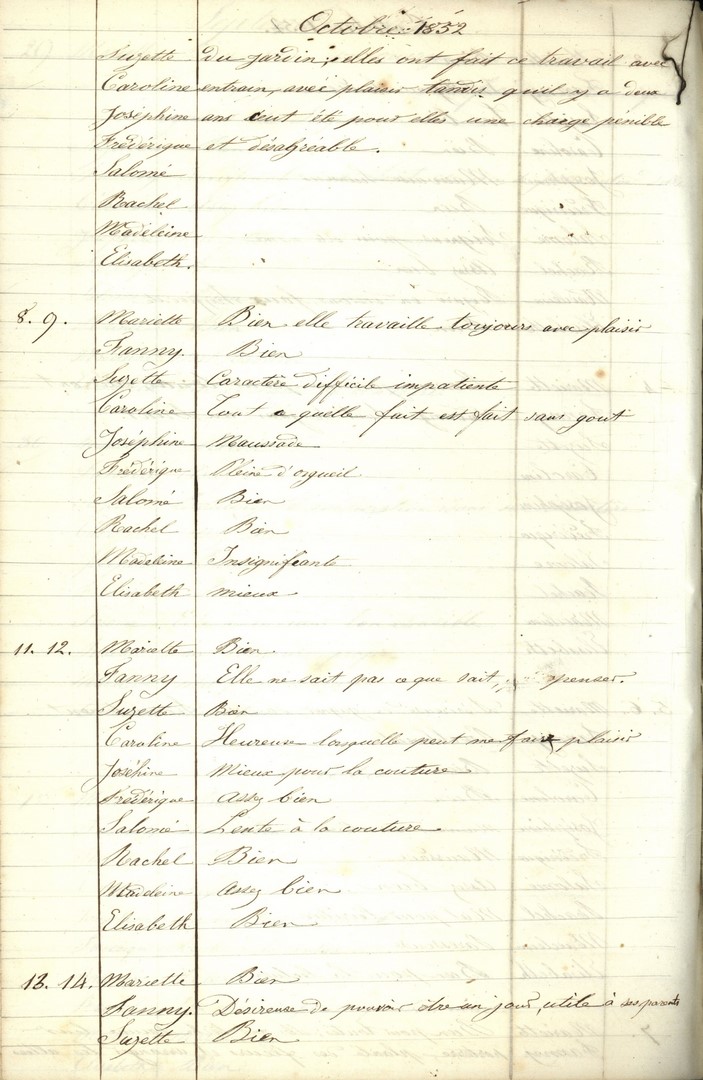 Octobre 1852
Suzette du jardin, elles ont fait ce travail avec
Caroline entrain, avec plaisir tandis qu'il y a deux
Joséphine ans ceut été pour elles une charge pénible
Frédérique et désagréable.
Salomé
Rachel
Madeleine
Elisabeth.
8. 9. Mariette Bien elle travaille toujours avec plaisir
Fanny. Bien
Suzette Caractère difficile impatiente
Caroline Tout ce quelle fait est fait sans gout
Joséphine Maussade
Frédérique Pleine d'orgueil
Salomé Bien
Rachel Bien
Madeleine Insignifiante
Elisabeth mieux
11. 12. Mariette Bien
Fanny Elle ne sait pas ce que sait penser.
Suzette Bien
Caroline Heureuse lorsquelle peut me faire plaisir
Joséhine Mieux pour la couture
Frédérique Assez bien
Salomé Lente à la couture
Rachel Bien
Madeleine Assez bien
Elisabeth Bien
13. 14. Mariette Bien
Fanny. Désireuse de pouvoir être un jour utile à ses parents
Suzette Bien